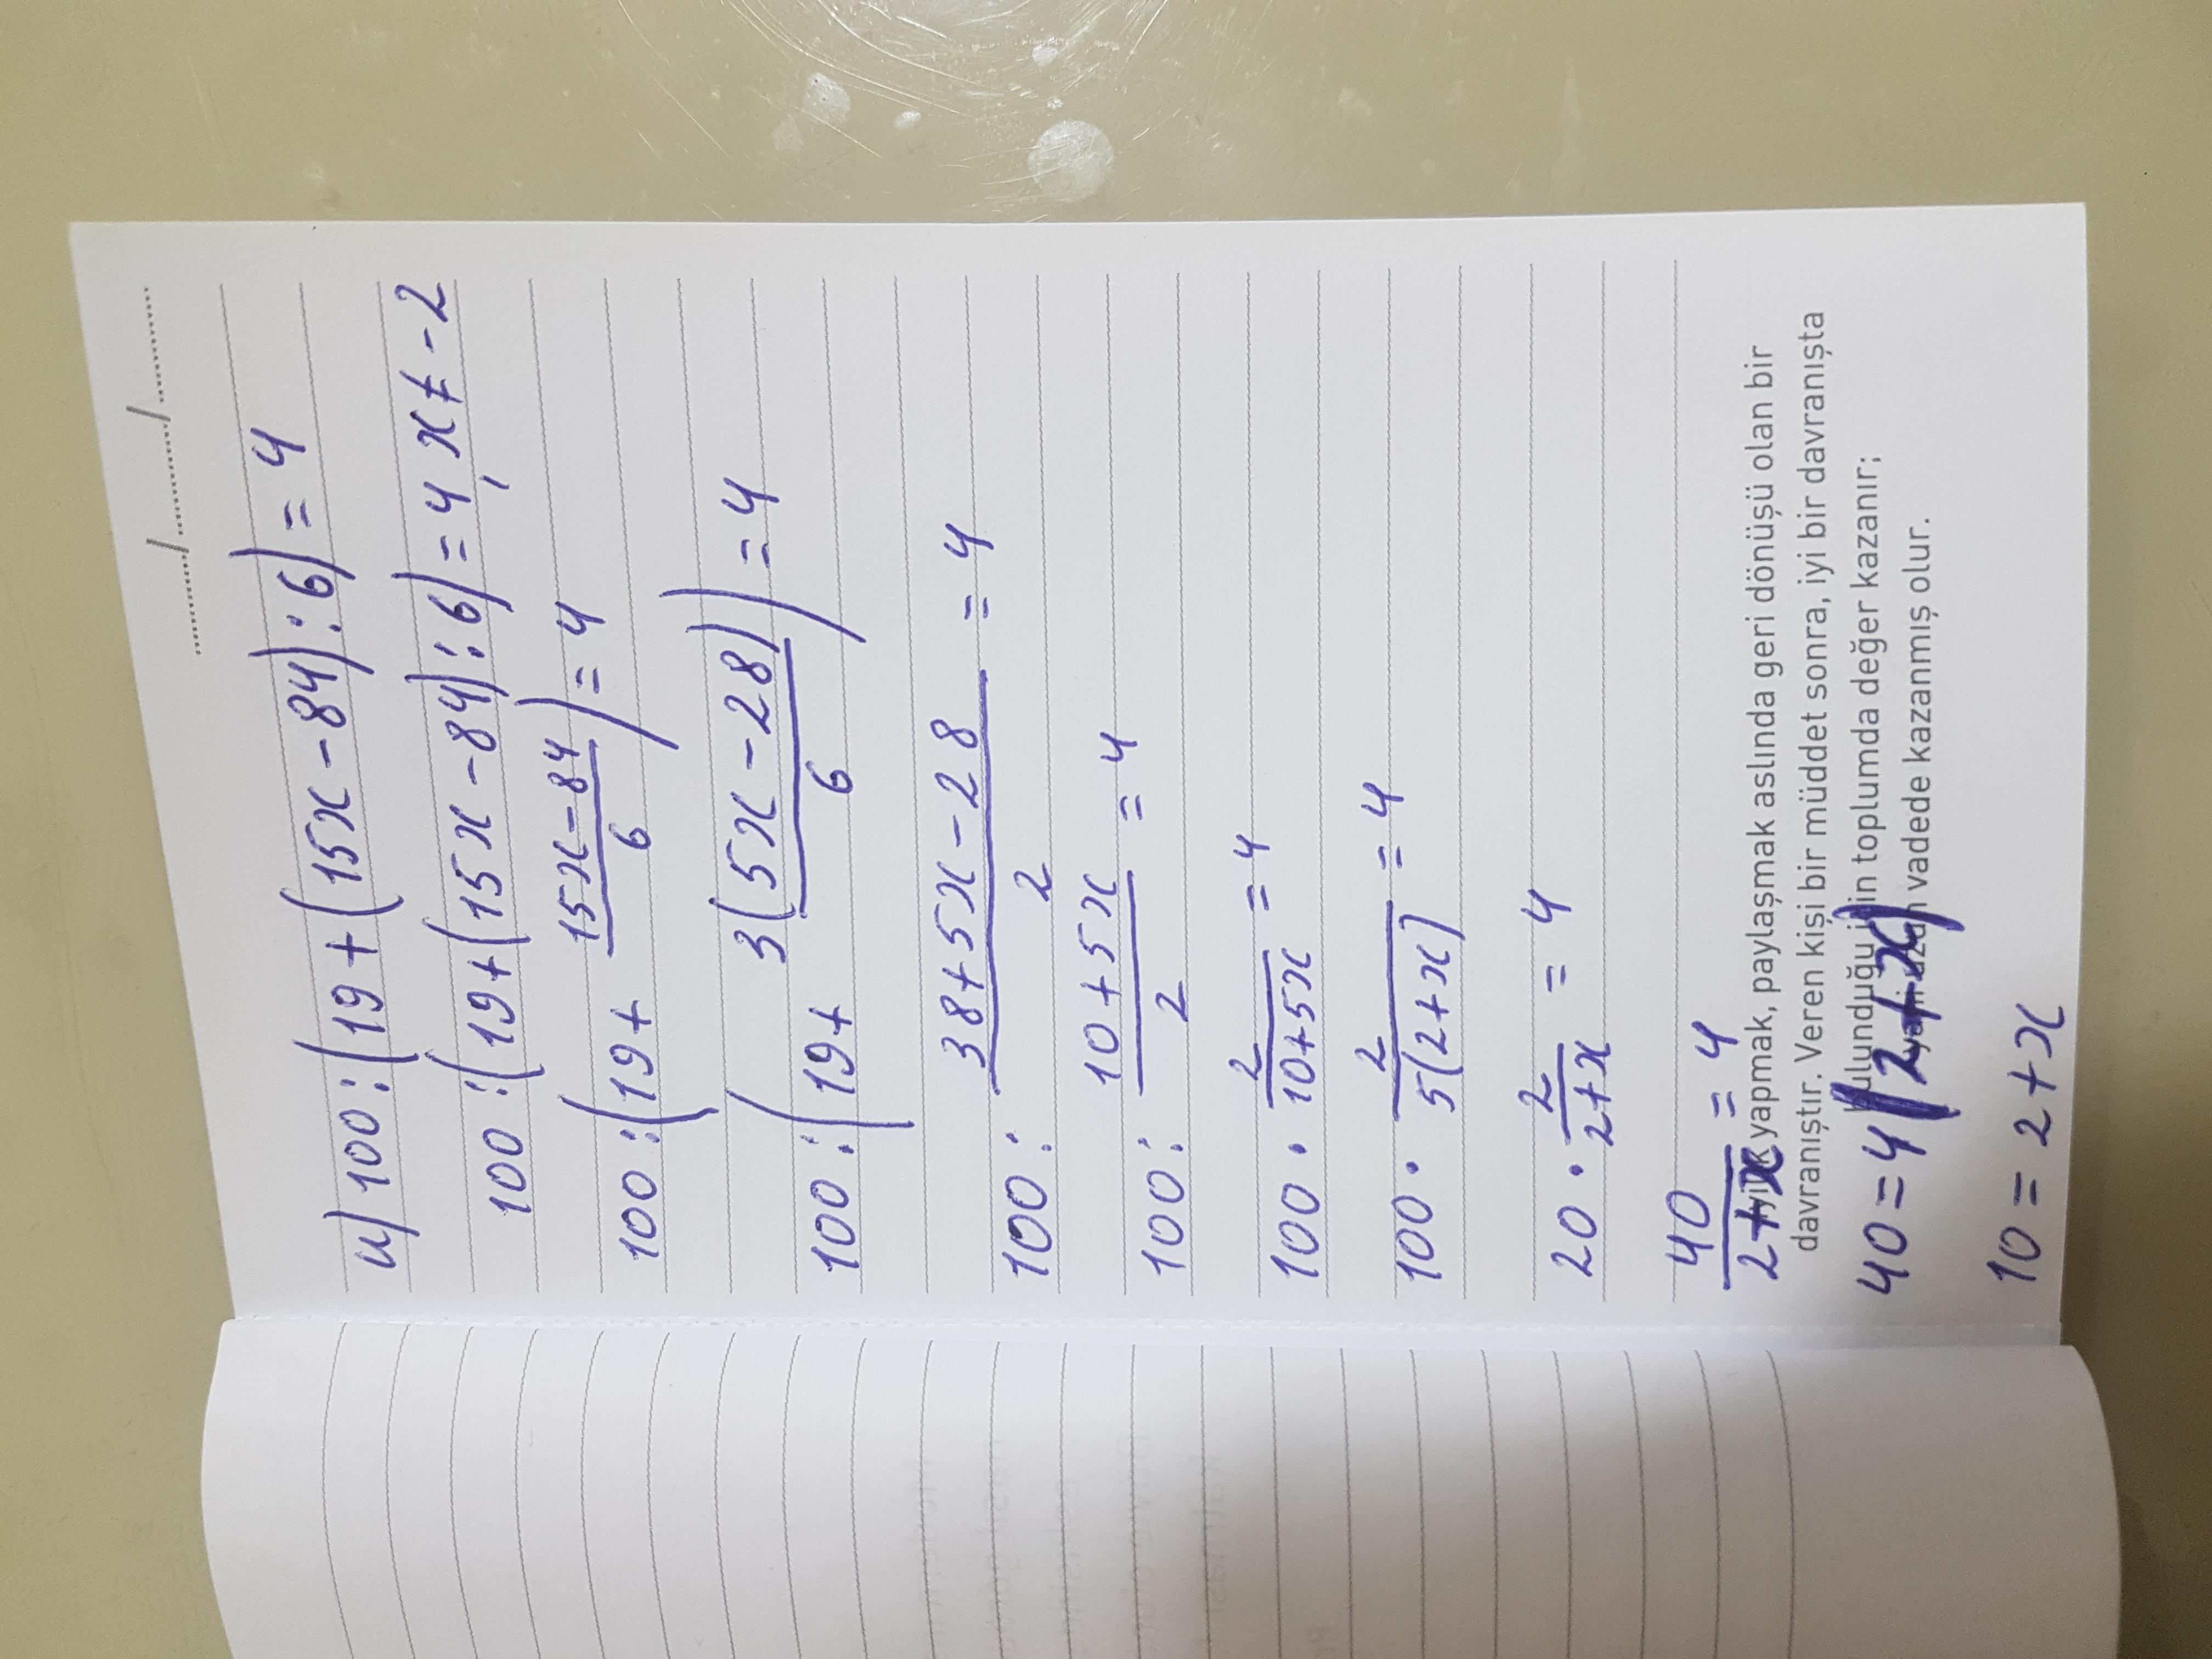 ....../....../......
и) 100 : (19 + (15x - 84) : 6) = 4
100 : (19 + (15x - 84) : 6) = 4, x ≠ -2
100 : (19 + \frac{15x - 84}{6}) = 4
100 : (19 + \frac{3(5x - 28)}{6}) = 4
100 : \frac{38 + 5x - 28}{2} = 4
100 : \frac{10 + 5x}{2} = 4
100 · \frac{2}{10 + 5x} = 4
100 · \frac{2}{5(2 + x)} = 4
20 · \frac{2}{2 + x} = 4
\frac{40}{2 + x} = 4
yapmak, paylaşmak aslında geri dönüşü olan bir
davranıştır. Veren kişi bir müddet sonra, iyi bir davranışta
bulunduğu için toplumda değer kazanır;
vadede kazanmış olur.
40 = 4(2 + x)
10 = 2 + x